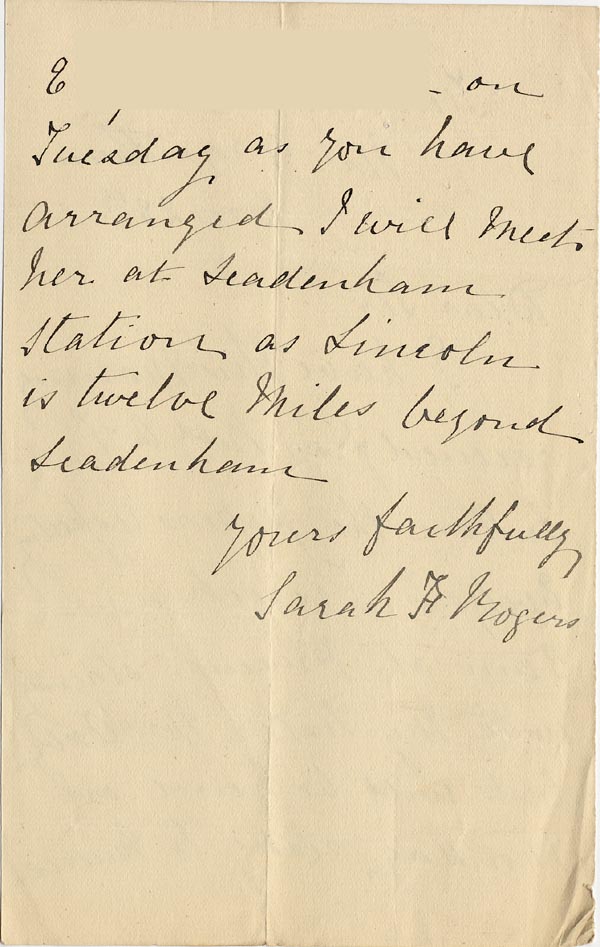 E - on
Tuesday as you have
arranged I will meet
her at Leadenham
station as Lincoln
is twelve miles beyond
Leadenham
yours faithfully
Sarah F Rogers